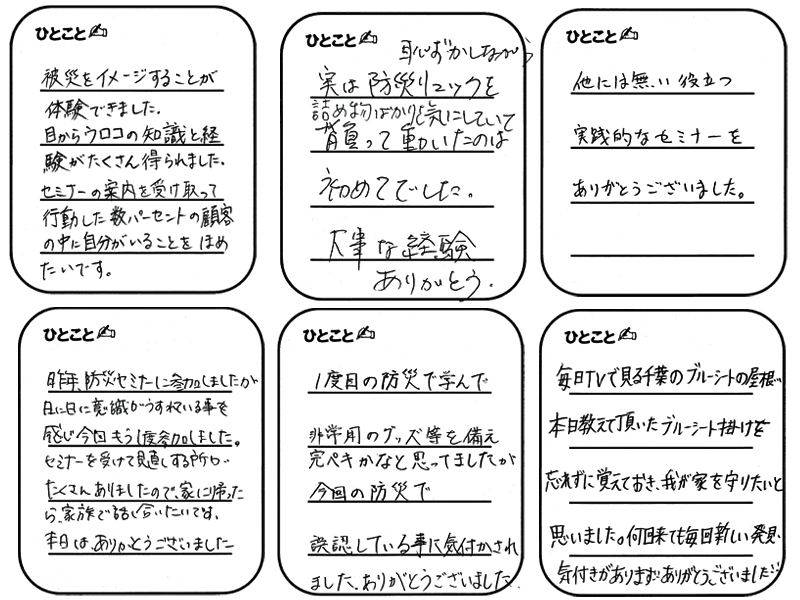 ひとこと
被災をイメージすることが
体験できました.
目からウロコの知識と経
験がたくさん得られました.
セミナーの案内を受け取って
行動した数パーセントの顧客
の中に自分がいることをほめ
たいです。
ひとこと
恥ずかしながら
実は防災リュックを
詰め物ばかり気にしていて
背負って動いたのは
初めてでした.
大事な経験
ありがとう.
ひとこと
他には無い役立つ
実践的なセミナーを
ありがとうございました。
ひとこと
昨年、防災セミナーに参加しましたが
日に日に意識がうすれている事を
感じ今回もう1度参加しました。
セミナーを受けて見直しする所が
たくさんありましたので、家に帰った
ら、家族で話し合いたいです。
本日は、ありがとうございました
ひとこと
1度目の防災で学んで
非常用のグッズ等を備え
完ペキかなと思ってましたが
今回の防災で
誤認している事に気付かされ
ました、ありがとうございました.
ひとこと
毎日TVで見る千葉のブルーシートの屋根..
本日教えて頂いたブルーシート掛けを
忘れずに覚えておき、我が家を守りたいと
思いました。何回来ても毎回新しい発見、
気付きがあります。ありがとうございました!!